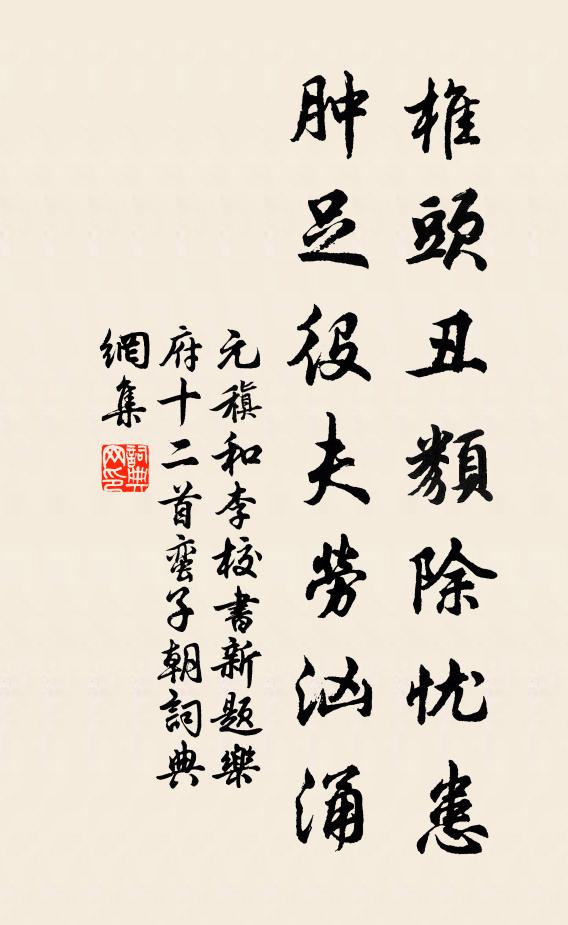 椎頭丑類除忧患
肿足役夫勞汹涌
元稹和李校書新題樂
府十二首蛮子朝詞典
網集
詞典
网印